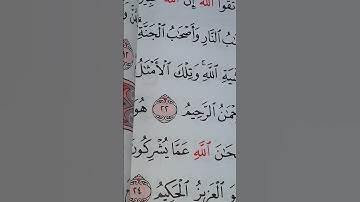 تَّقُوا۟ ٱللَّهَ إِنَّ ٱللَّهَ خَبِيرٌ
بُ ٱلنَّارِ وَأَصْحَٰبُ ٱلْجَنَّةِ
يَةِ ٱللَّهِ وَتِلْكَ ٱلْأَمْثَٰلُ
حْمَٰنُ ٱلرَّحِيمُ ٢٢ هُوَ
حَٰنَ ٱللَّهِ عَمَّا يُشْرِكُونَ
وَ ٱلْعَزِيزُ ٱلْحَكِيمُ ٢٤